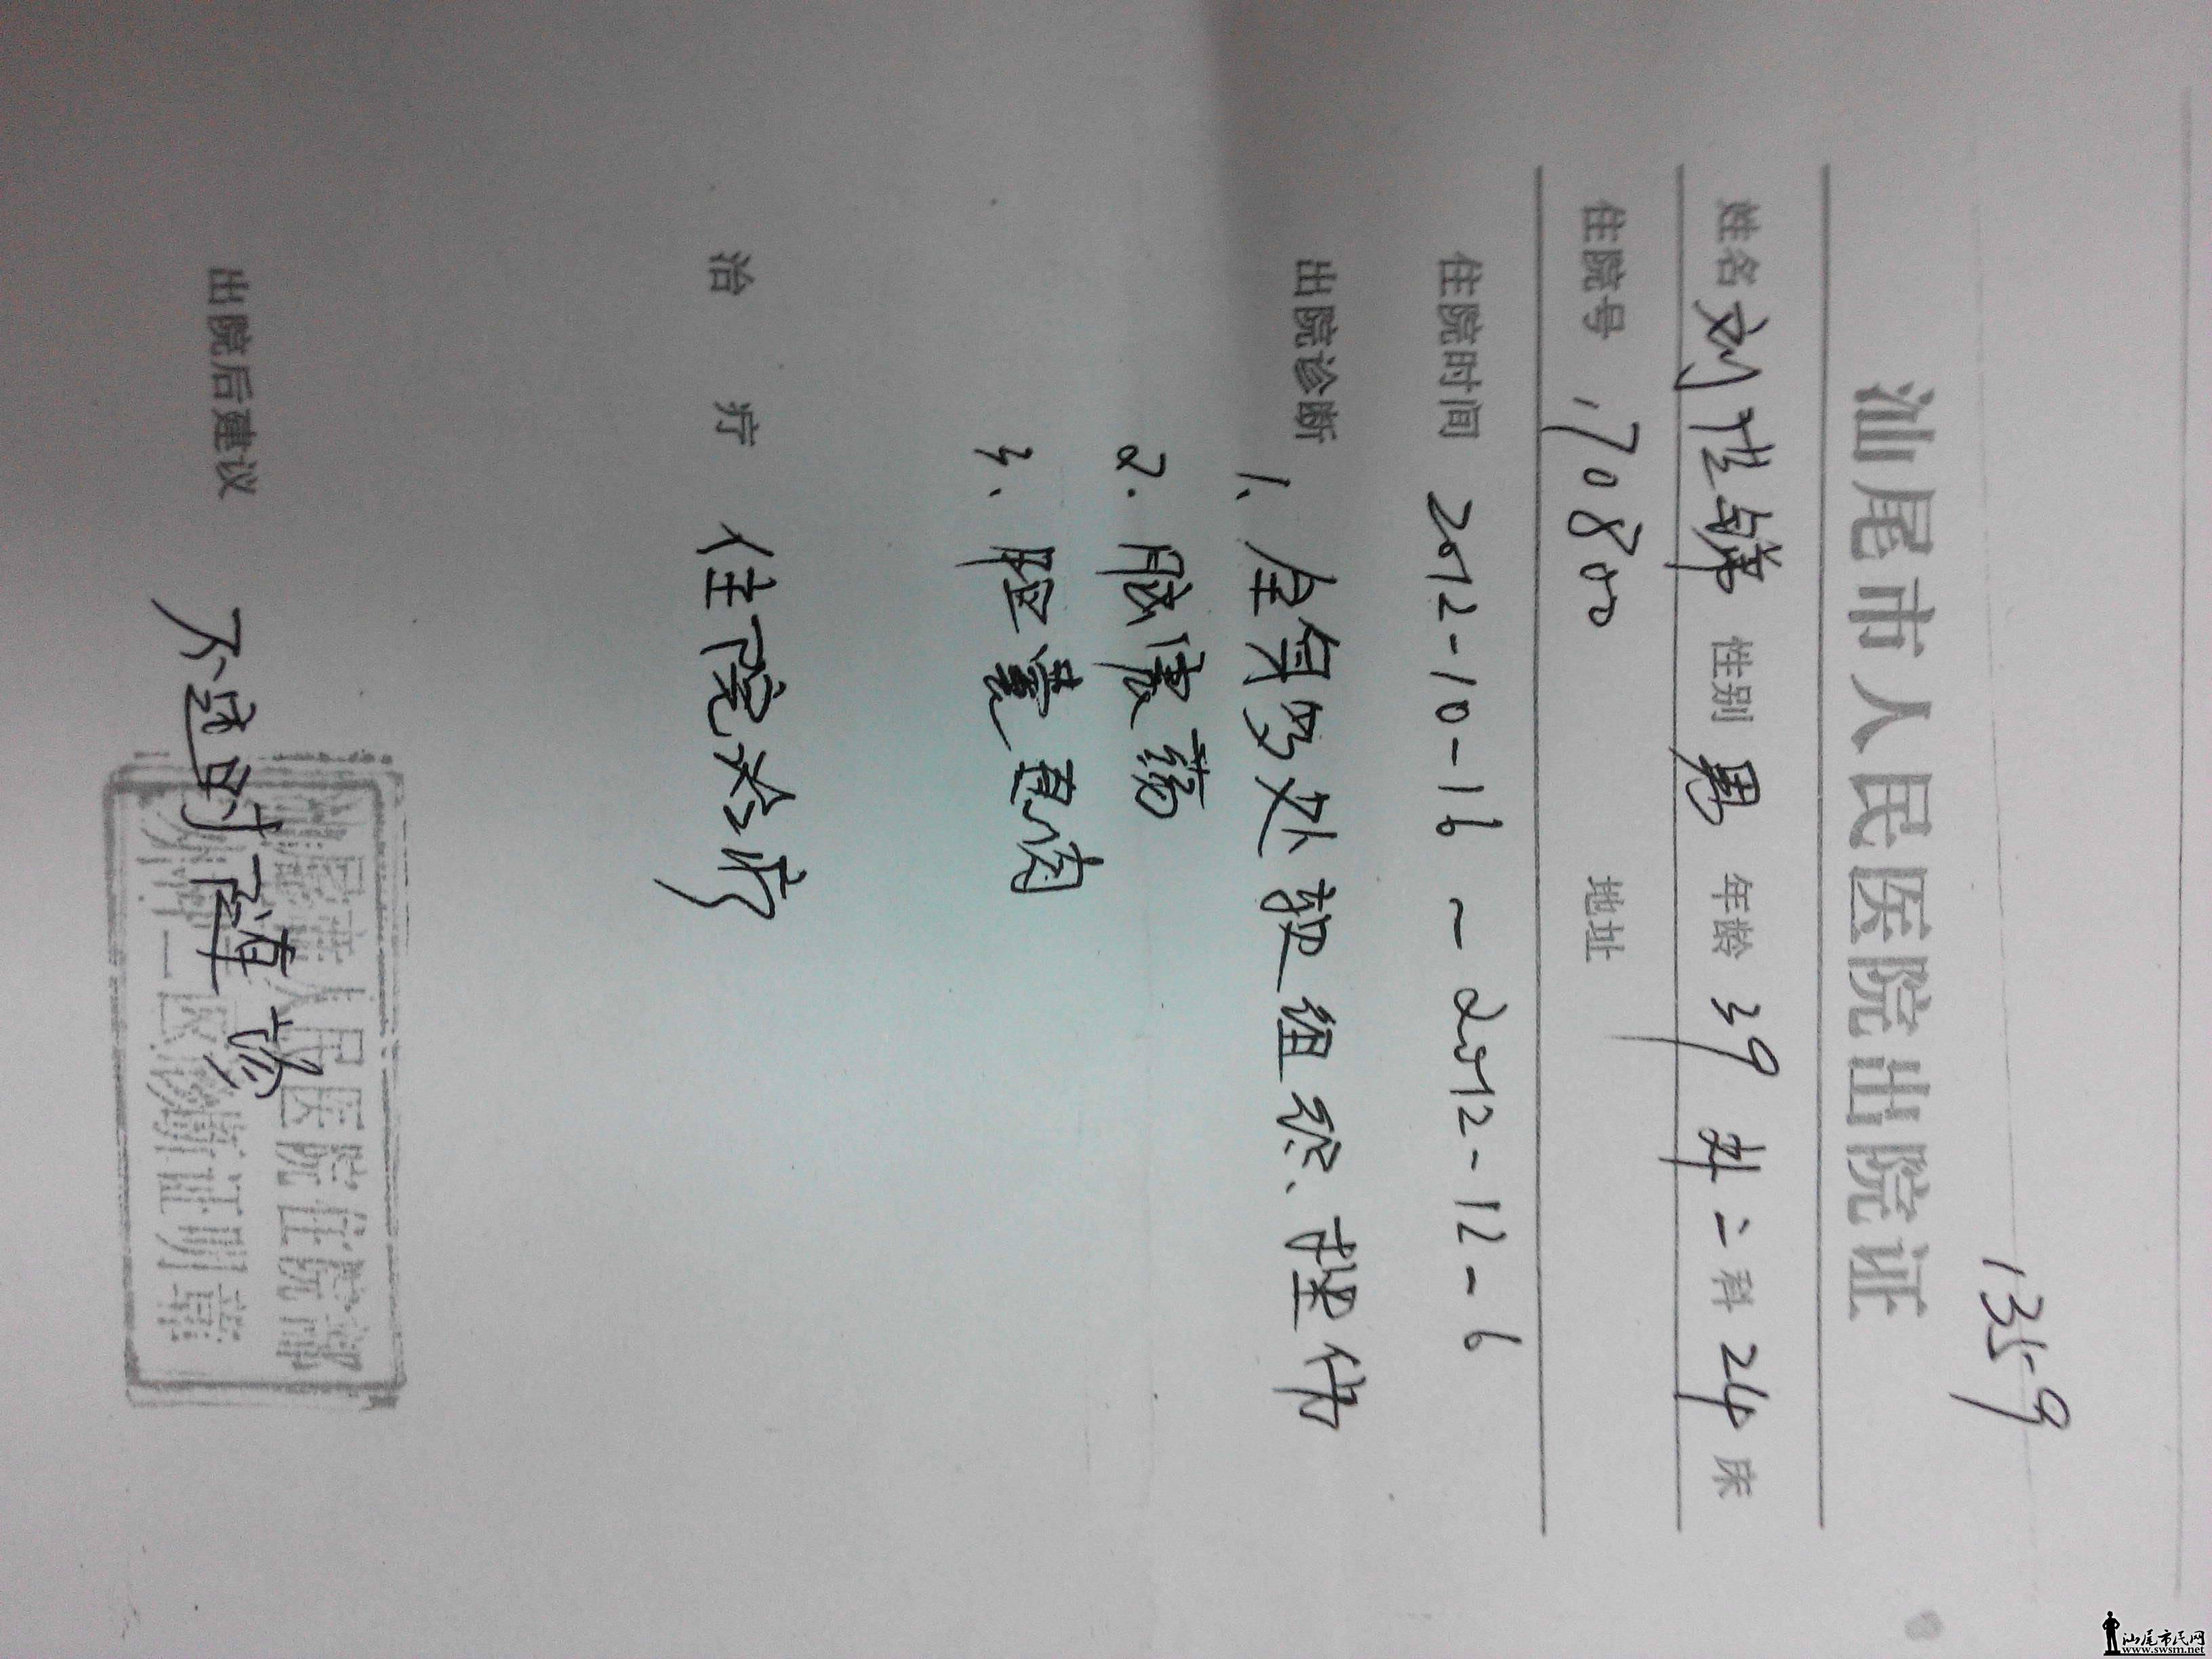 1359
汕尾市人民医院出院证
姓名 刘 性别 男 年龄 39 外二科 24 床
住院号 170800 地址
住院时间 2012-10-16 ~ 2012-12-6
出院诊断
1、全身多处软组织挫伤
2. 脑震荡
3、胆囊息肉
治疗 住院治疗
出院后建议 不适时随诊
汕尾市人民医院住院部
外科二区诊断证明章
汕尾市民网
www.swsm.net